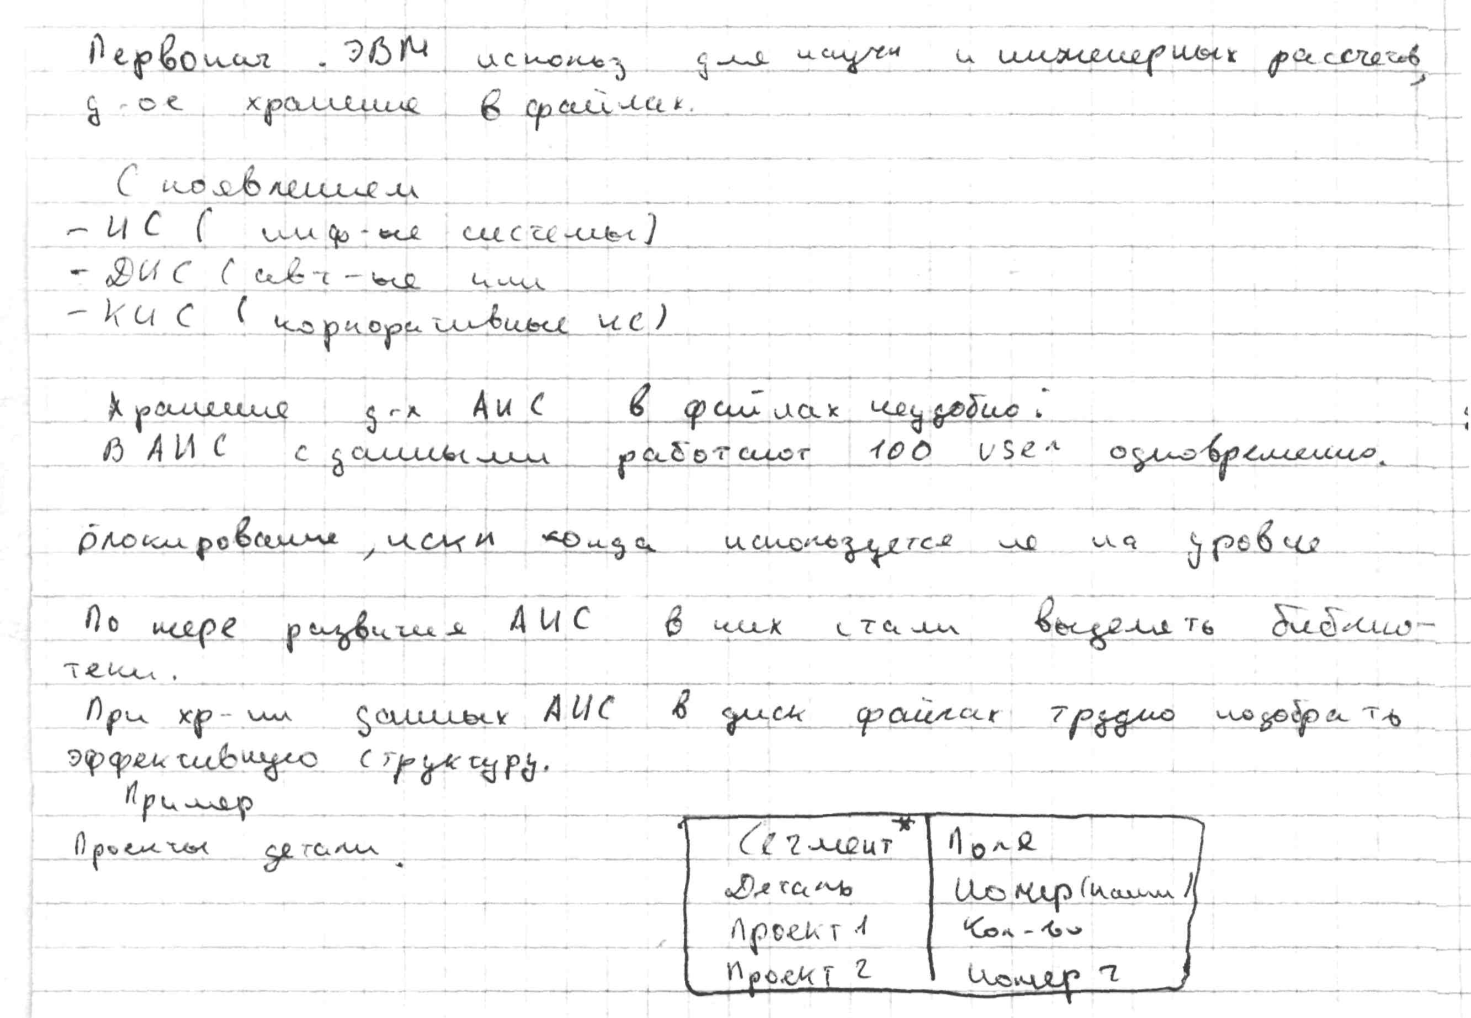 Первонач. ЭВМ использ для научн и инженерных рассчетов,
д-ое хранение в файлах.
С появлением
- ИС ( инф-ые системы)
- ДИС (авт-ые или
- КИС ( корпоративные ис)
Хранение д-х АИС в файлах неудобно:
В АИС с данными работают 100 user одновременно.
блокирование, когда используется не на уровне
По мере развития АИС в них стали выделять библио-
теки.
При хр-ии данных АИС в диск файлах трудно подобрать
эффективную структуру.
Пример
Проекты детали.
Сегмент* Поля
Деталь Номер (наим)
Проект 1 Кол-во
Проект 2 Номер 2